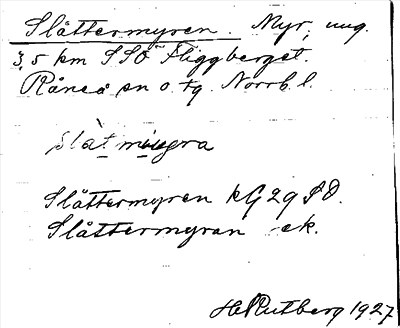 Slåttermyren. Myr, ung.
3,5 km SSO Fliggberget.
Råneå sn o tg Norrb. l.
Slåttermyren kG2gSO.
Slåttermyran ek.
H Rutberg 1927